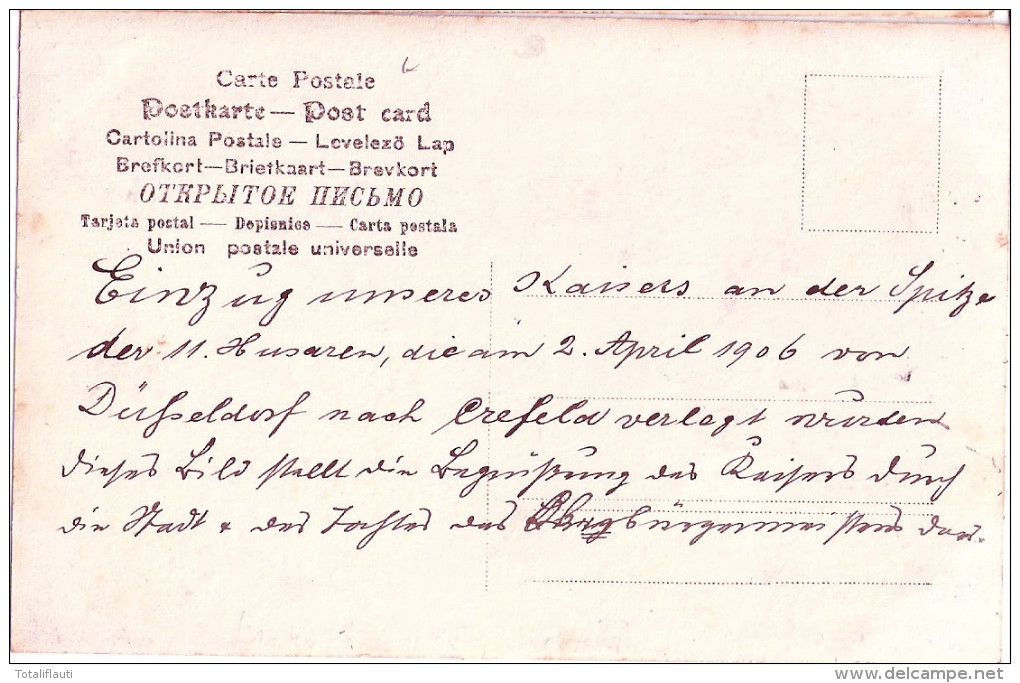 Carte Postale
Postkarte — Post card
Cartolina Postale — Levelező Lap
Brefkort — Briefkaart — Brevkort
ОТКРЫТОЕ ПИСЬМО
Tarjeta postal — Dopisnice — Carta postala
Union postale universelle
Einzug unseres Kaisers an der Spitze
der 11. Husaren, die am 2. April 1906 von
Düsseldorf nach Crefeld verlegt wurden
dieses Bild stellt die Begrüßung des Kaisers durch
die Stadt & des Tochter des bürgermeisters dar.
Totaliflauti
www.delcampe.net